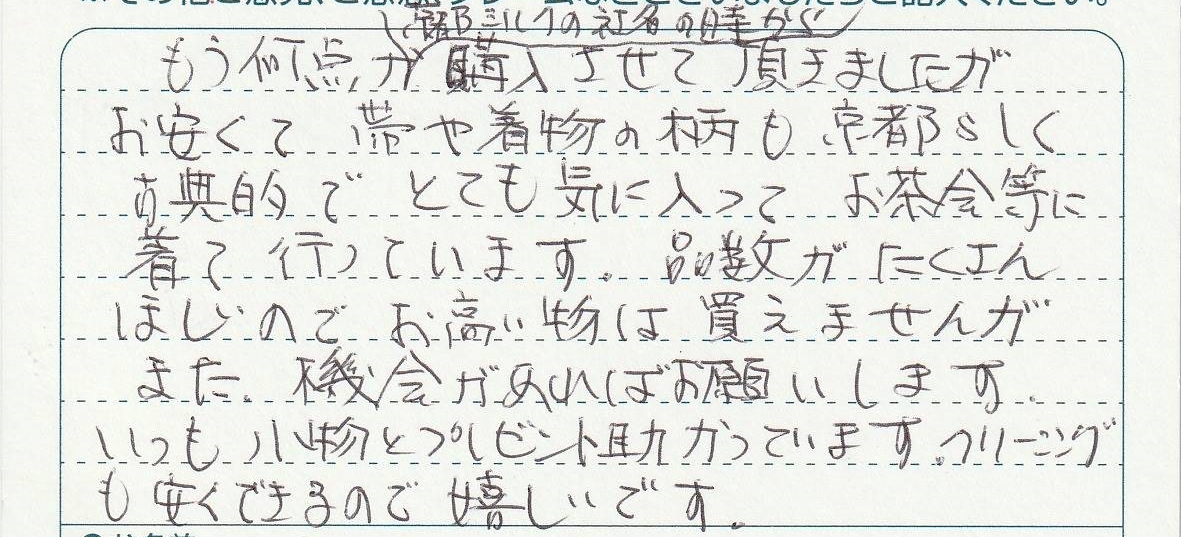 京都シルクの社名の時から
もう何点か購入させて頂きましたが
お安くて 帯や着物の柄も 京都らしく
古典的で とても気に入って お茶会等に
着て行っています。品数がたくさん
ほしいので お高い物は買えませんが
また、機会があればお願いします。
いつも小物とプレゼント助かっています。クリーニング
も安くできるので嬉しいです。